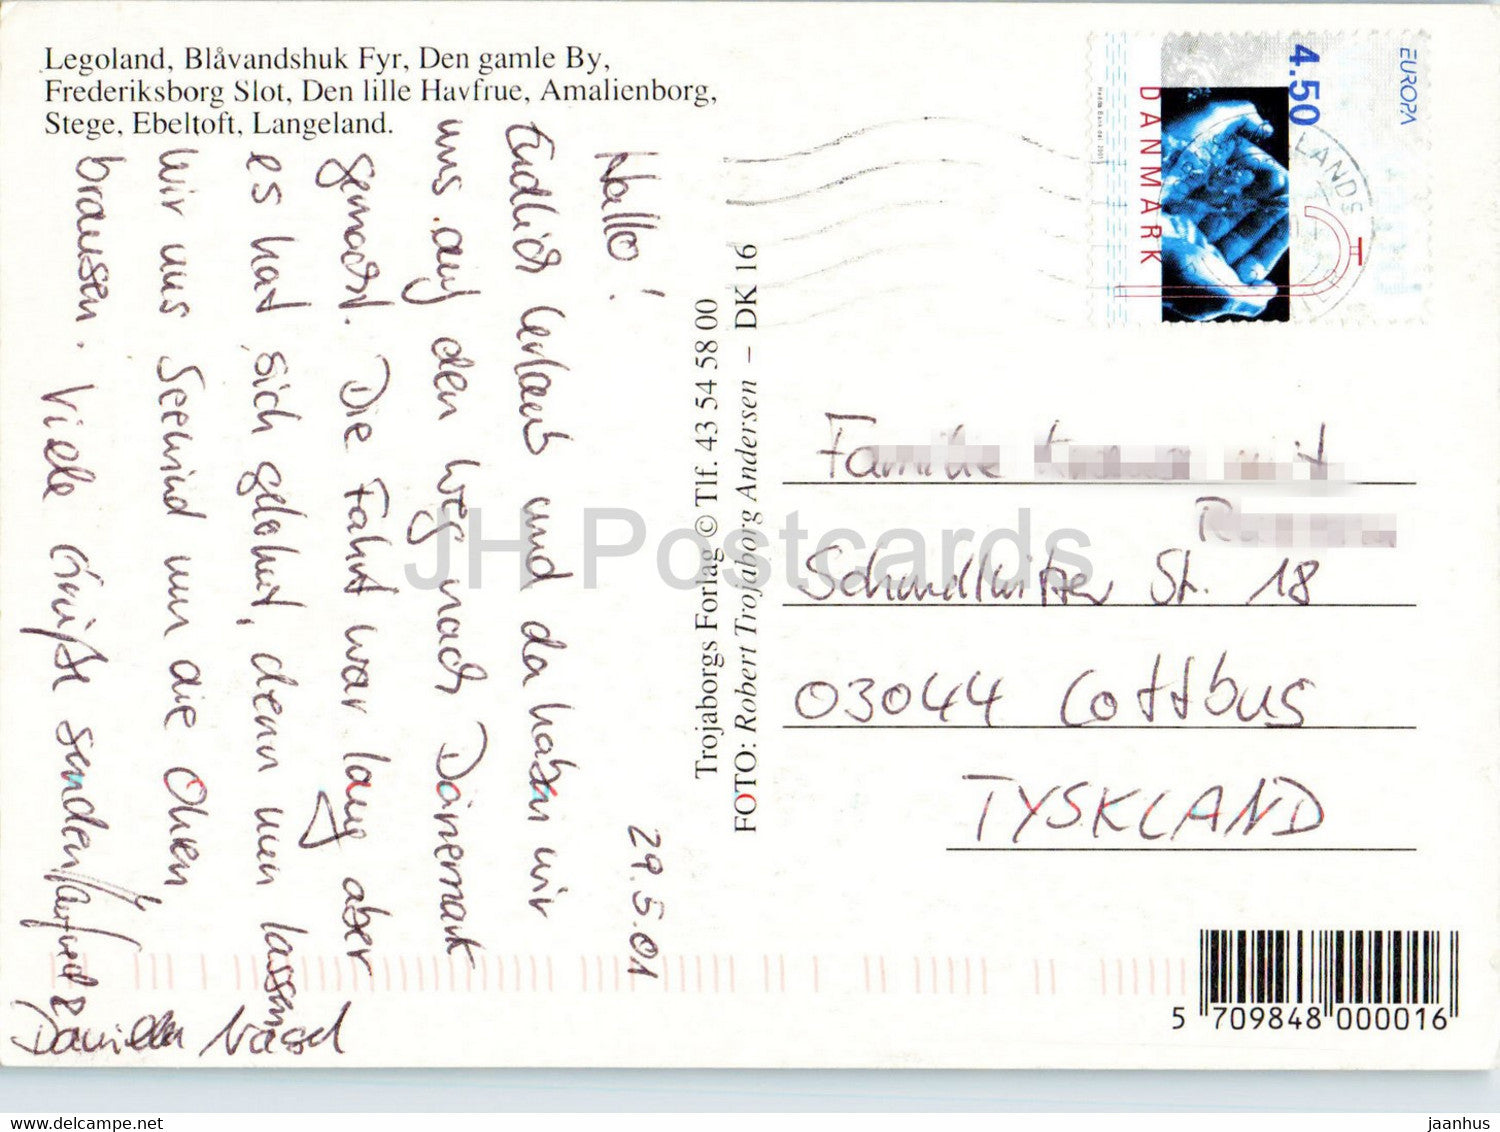 Legoland, Blåvandshuk Fyr, Den gamle By,
Frederiksborg Slot, Den lille Havfrue, Amalienborg,
Stege, Ebeltoft, Langeland.
29.5.01
Hallo!
Endlich Urlaub und da haben wir
uns auf den Weg nach Dänemark
gemacht. Die Fahrt war lang aber
es hat sich gelohnt, denn nun lassen
wir uns Seewind um die Ohren
brausen. Viele Grüße senden Manfred &
Daniela
Trojaborgs Forlag © Tlf. 43 54 58 00
FOTO: Robert Trojaborg Andersen – DK 16
EUROPA
4.50
DANMARK
LANDS
Familie mit
Str. 18
03044 Cottbus
TYSKLAND
5 709848 000016
JH Postcards
delcampe.net
jaanhus